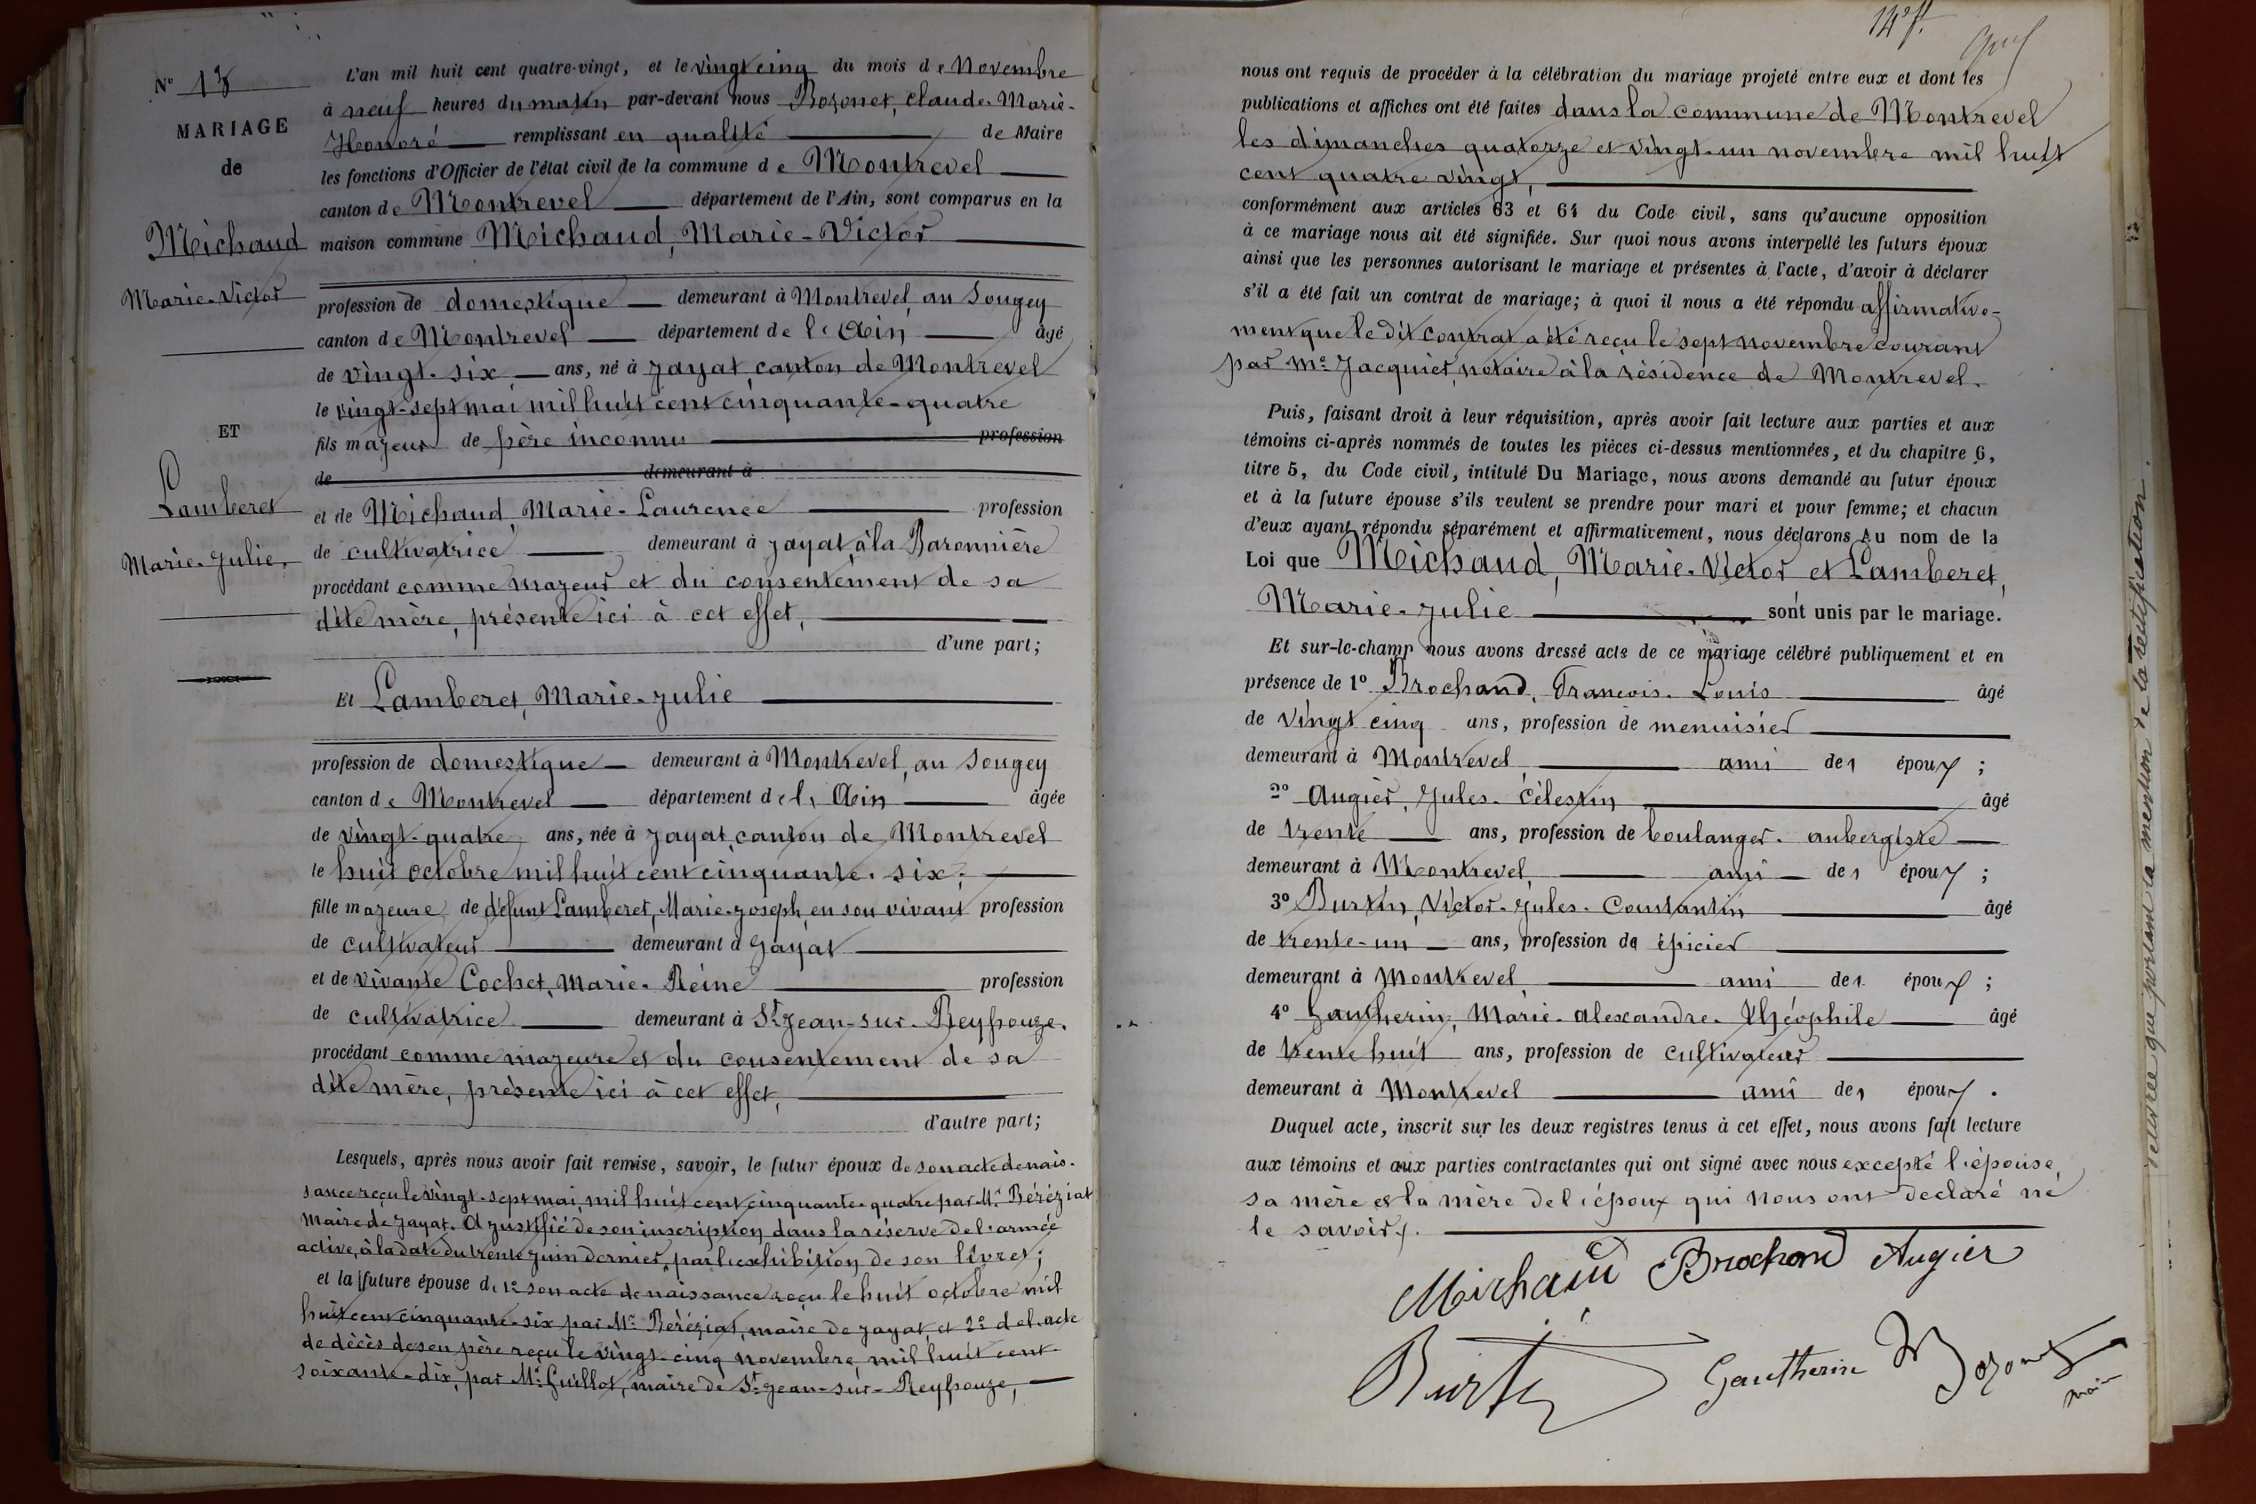 N° 13
MARIAGE
de
Michaud
Marie-Victor
ET
Lamberet
Marie-Julie,
L'an mil huit cent quatre-vingt, et le vingt cinq du mois de Novembre
à neuf heures du matin par-devant nous Bozonet, Claude-Marie-
Honoré remplissant en qualité de Maire
les fonctions d'Officier de l'état civil de la commune de Montrevel
canton de Montrevel département de l'Ain, sont comparus en la
maison commune Michaud, Marie-Victor
profession de domestique demeurant à Montrevel, au Sougey
canton de Montrevel département de l'Ain, âgé
de vingt-six ans, né à Jayat, canton de Montrevel
le vingt-sept mai mil huit cent cinquante-quatre
fils majeur de père inconnu profession
de demeurant à
et de Michaud, Marie-Laurence profession
de cultivatrice demeurant à Jayat, à la Baronnière
procédant comme majeur et du consentement de sa
dite mère, présente ici à cet effet,
d'une part;
Et Lamberet, Marie-Julie
profession de domestique demeurant à Montrevel, au Sougey
canton de Montrevel département de l'Ain âgée
de vingt-quatre ans, née à Jayat, canton de Montrevel
le huit octobre mil huit cent cinquante-six;
fille majeure de défunt Lamberet, Marie-Joseph, en son vivant profession
de cultivateur demeurant à Jayat
et de vivante Cochet, Marie-Reine profession
de cultivatrice demeurant à St Jean-sur-Reyssouze.
procédant comme majeure et du consentement de sa
dite mère, présente ici à cet effet,
d'autre part;
Lesquels, après nous avoir fait remise, savoir, le futur époux de son acte de nais-
sance reçu le vingt-sept mai, mil huit cent cinquante-quatre par Mr Béréziat
Maire de Jayat. A justifié de son inscription dans la réserve de l'armée
active, à la date du trente juin dernier, par l'exhibition de son livret;
et la future épouse de 1° son acte de naissance reçu le huit octobre mil
huit cent cinquante-six par Mr Béréziat, maire de Jayat et 2° de l'acte
de décès de son père reçu le vingt-cinq novembre mil huit cent
soixante-dix, par Mr Guillot, maire de St Jean-sur-Reyssouze,
nous ont requis de procéder à la célébration du mariage projeté entre eux et dont les
publications et affiches ont été faites dans la commune de Montrevel
les dimanches quatorze et vingt-un novembre mil huit
cent quatre vingt,
conformément aux articles 63 et 64 du Code civil, sans qu'aucune opposition
à ce mariage nous ait été signifiée. Sur quoi nous avons interpellé les futurs époux
ainsi que les personnes autorisant le mariage et présentes à l'acte, d'avoir à déclarer
s'il a été fait un contrat de mariage; à quoi il nous a été répondu affirmative-
ment que le dit contrat a été reçu le sept novembre courant
par Me Jacquier, notaire à la résidence de Montrevel.
Puis, faisant droit à leur réquisition, après avoir fait lecture aux parties et aux
témoins ci-après nommés de toutes les pièces ci-dessus mentionnées, et du chapitre 6,
titre 5, du Code civil, intitulé Du Mariage, nous avons demandé au futur époux
et à la future épouse s'ils veulent se prendre pour mari et pour femme; et chacun
d'eux ayant répondu séparément et affirmativement, nous déclarons Au nom de la
Loi que Michaud, Marie-Victor et Lamberet,
Marie-Julie sont unis par le mariage.
Et sur-le-champ nous avons dressé acte de ce mariage célébré publiquement et en
présence de 1° Brochand, François-Louis âgé
de vingt cinq ans, profession de menuisier
demeurant à Montrevel, ami de l époux ;
2° Augier, Jules-Célestin âgé
de trente ans, profession de boulanger-aubergiste
demeurant à Montrevel, ami de l époux ;
3° Burtin, Victor-Jules-Constantin âgé
de trente-un ans, profession de épicier
demeurant à Montrevel, ami de l époux ;
4° Gautherin, Marie-Alexandre-Théophile âgé
de trente huit ans, profession de cultivateur
demeurant à Montrevel ami de l époux .
Duquel acte, inscrit sur les deux registres tenus à cet effet, nous avons fait lecture
aux témoins et aux parties contractantes qui ont signé avec nous excepté l'épouse,
sa mère et la mère de l'époux qui nous ont déclaré ne
le savoir.
Michaud Brochand Augier
Burtin Gautherin Bozonet
maire
délivrée que portant la mention de la rectification.